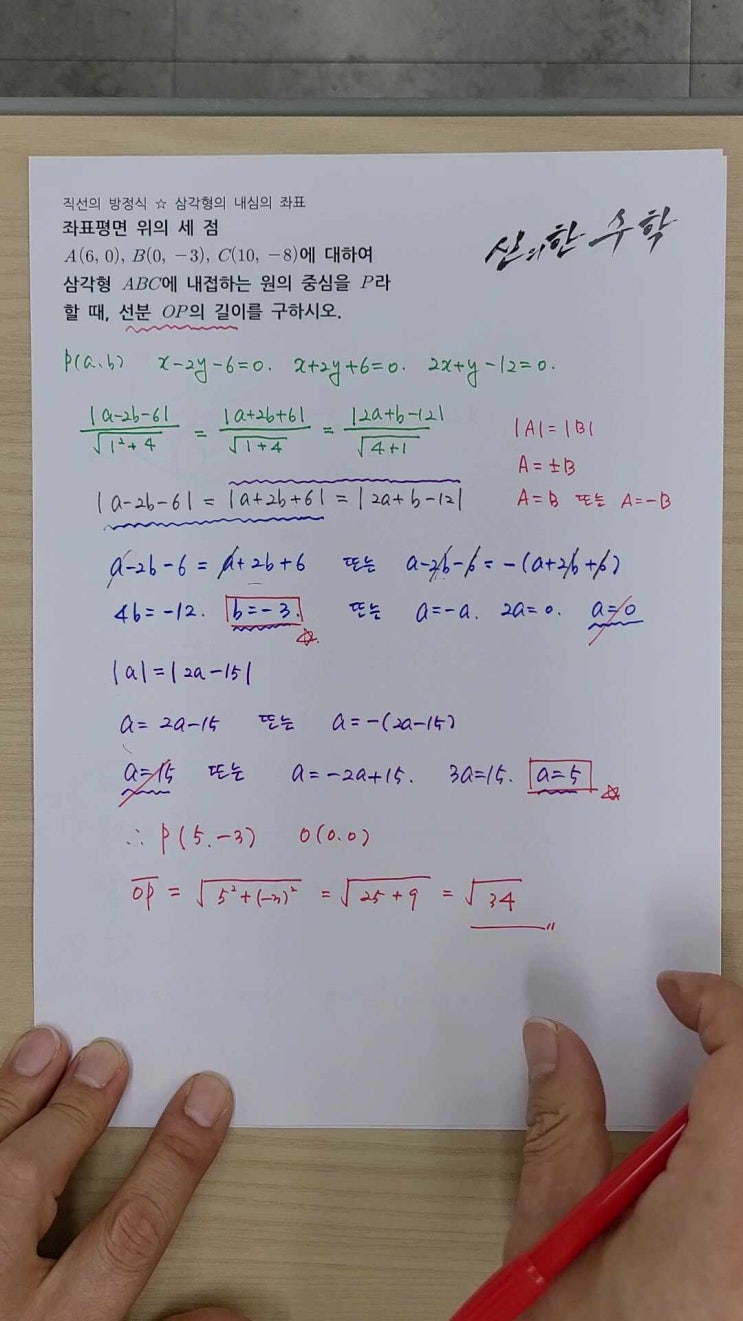 직선의 방정식 ☆ 삼각형의 내심의 좌표
좌표평면 위의 세 점
A(6, 0), B(0, −3), C(10, −8)에 대하여
삼각형 ABC에 내접하는 원의 중심을 P라
할 때, 선분 OP의 길이를 구하시오.
신의한 수학
P(a.b) x-2y-6=0. x+2y+6=0. 2x+y-12=0.
|a-2b-6|/√(1²+4) = |a+2b+6|/√(1+4) = |2a+b-12|/√(4+1)
|A|=|B|
A=±B
A=B 또는 A=-B
|a-2b-6| = |a+2b+6| = |2a+b-12|
a-2b-6 = a+2b+6 또는 a-2b-6=-(a+2b+6)
4b=-12. b=-3. 또는 a=-a. 2a=0. a=0
|a|=|2a-15|
a=2a-15 또는 a=-(2a-15)
a=15 또는 a=-2a+15. 3a=15. a=5
∴ P(5.-3) O(0.0)
OP = √(5²+(-3)²) = √(25+9) = √34